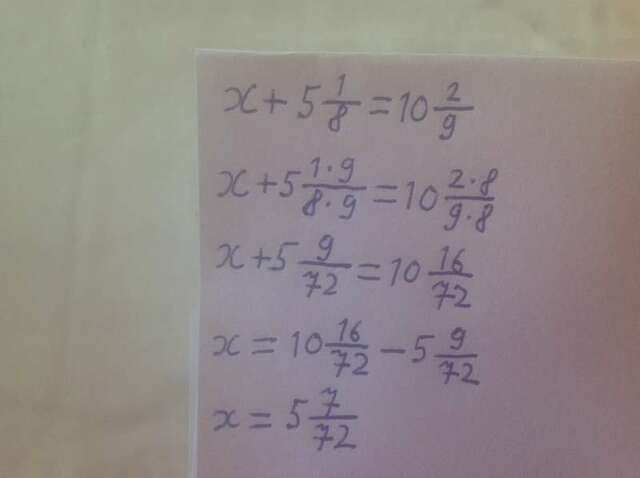 x + 5 1/8 = 10 2/9
x + 5 1·9/8·9 = 10 2·8/9·8
x + 5 9/72 = 10 16/72
x = 10 16/72 − 5 9/72
x = 5 7/72